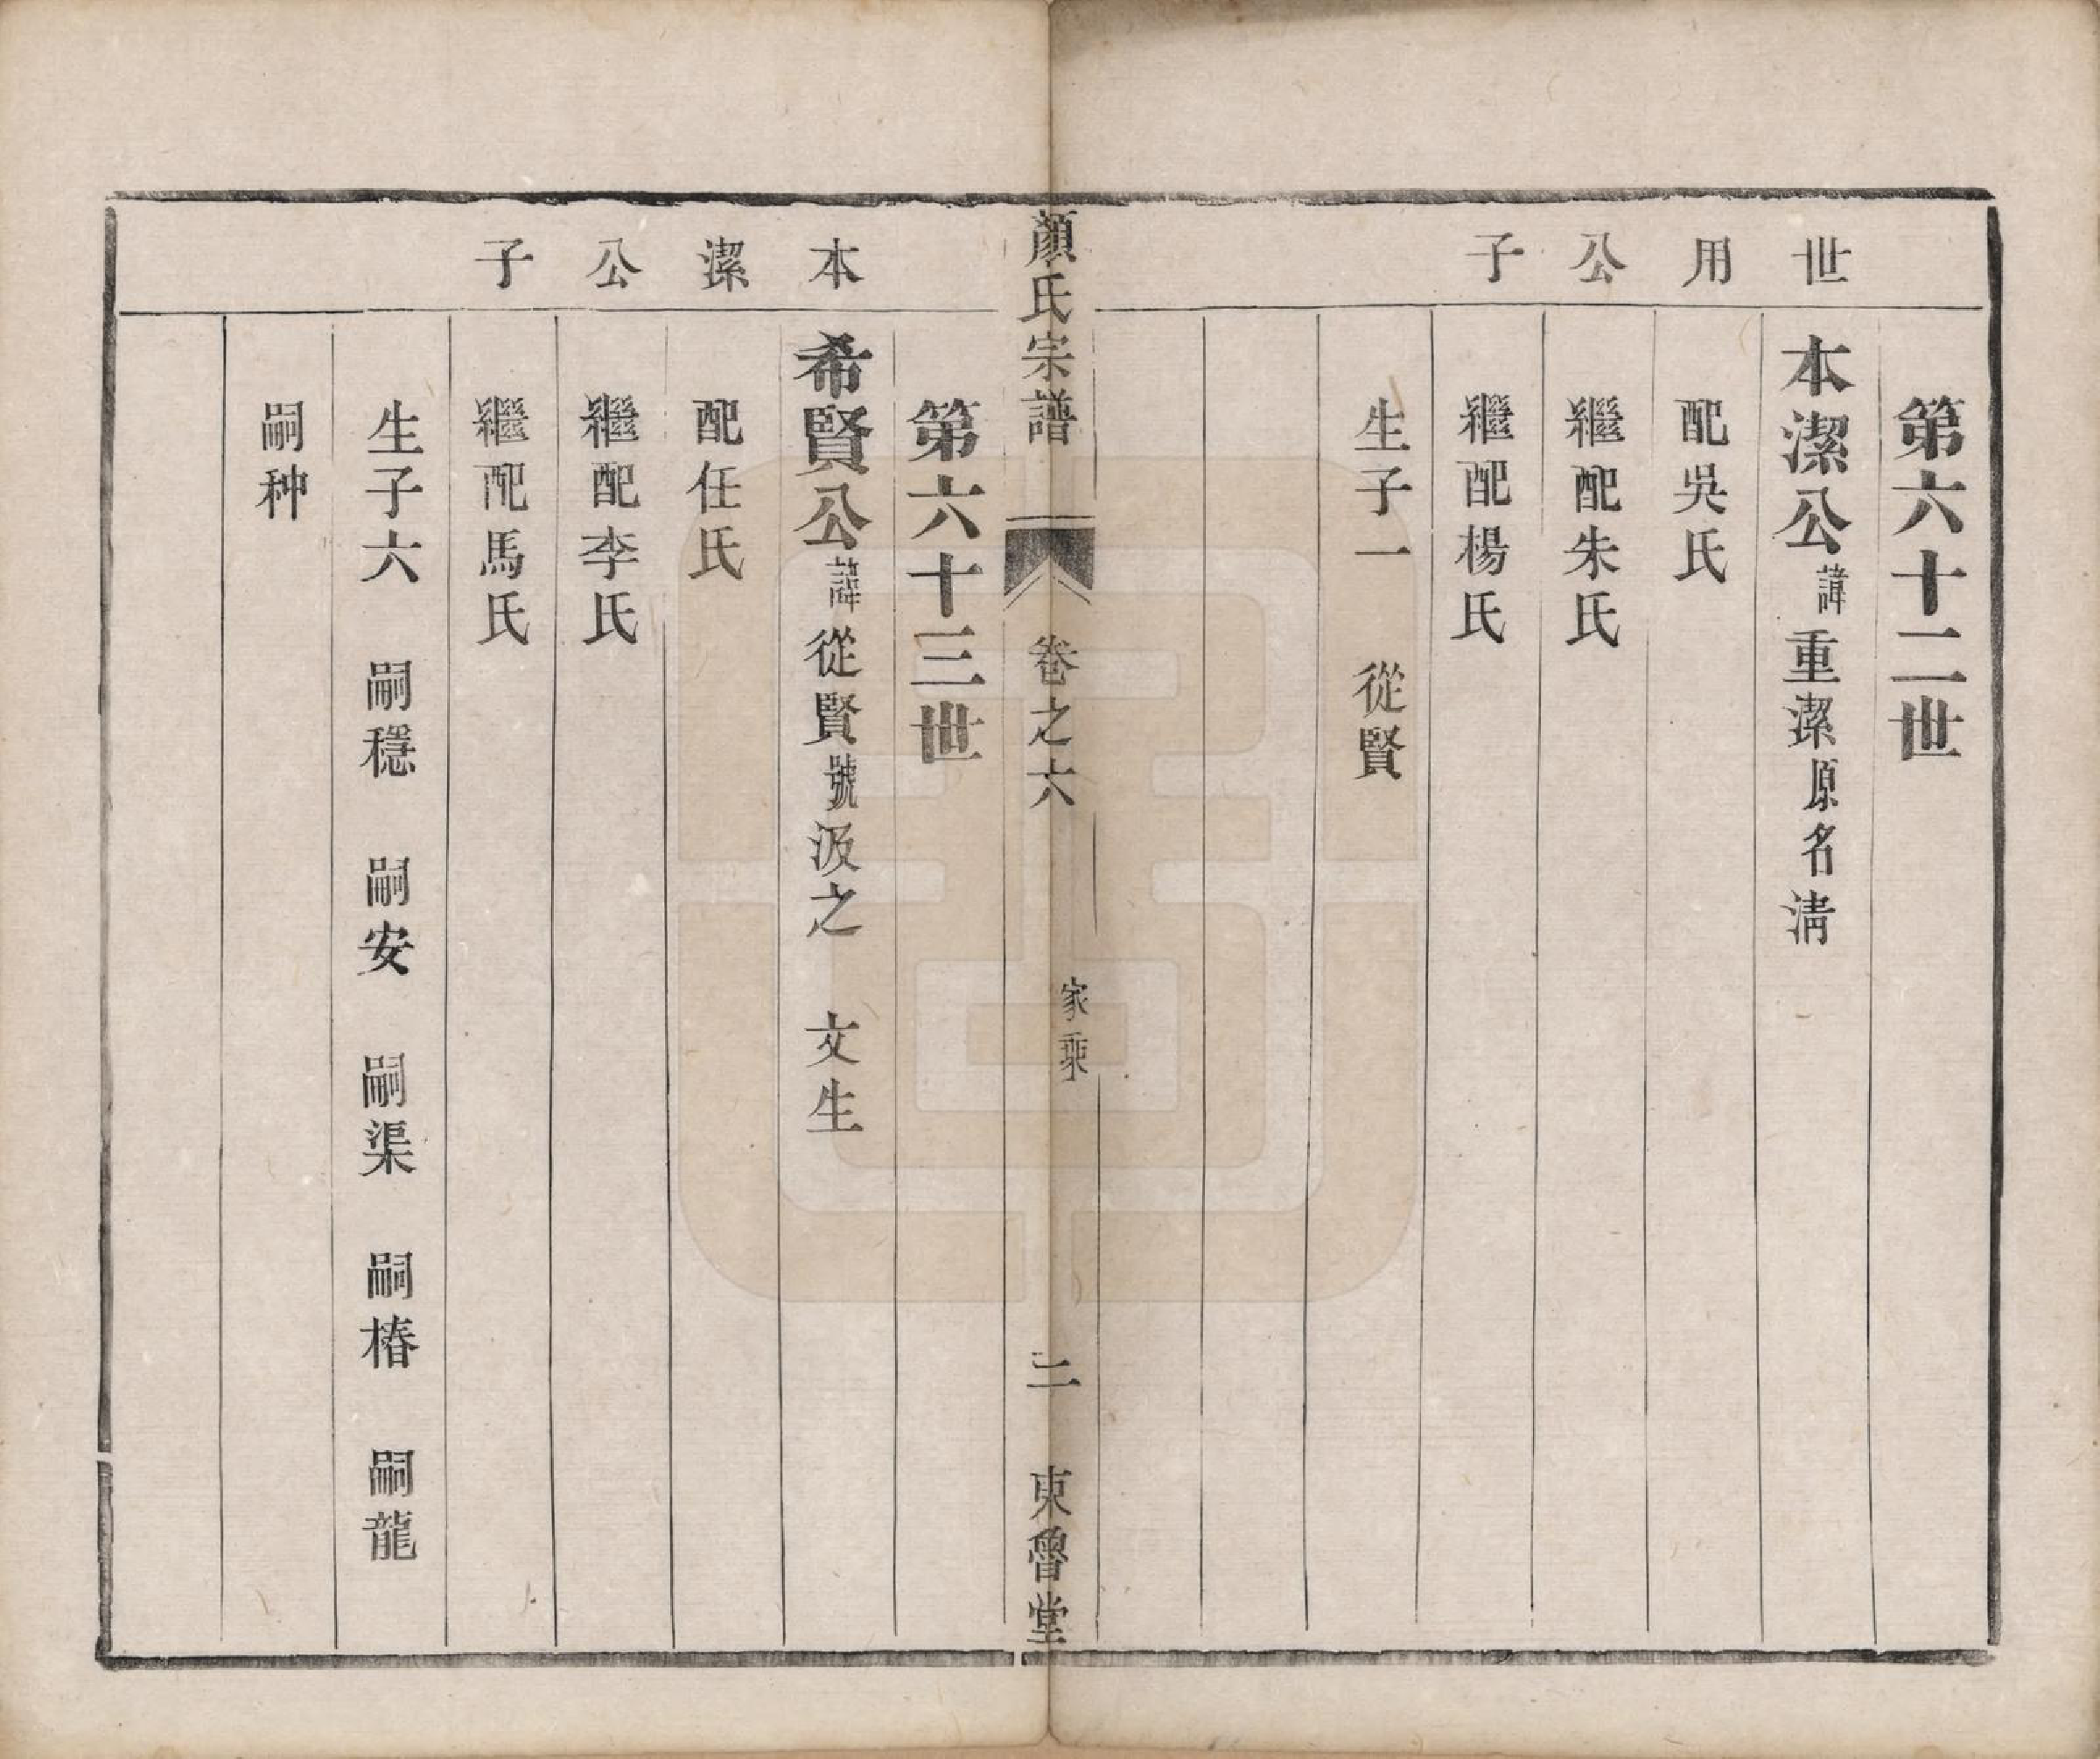 世用公子
第六十二世
本潔公諱重潔原名淸
配吳氏
繼配朱氏
繼配楊氏
生子一　從賢
顏氏宗譜　卷之六　家乘　二　東魯堂
本潔公子
第六十三世
希賢公諱從賢號汲之　文生
配任氏
繼配李氏
繼配馬氏
生子六　嗣穩　嗣安　嗣渠　嗣椿　嗣龍
嗣种